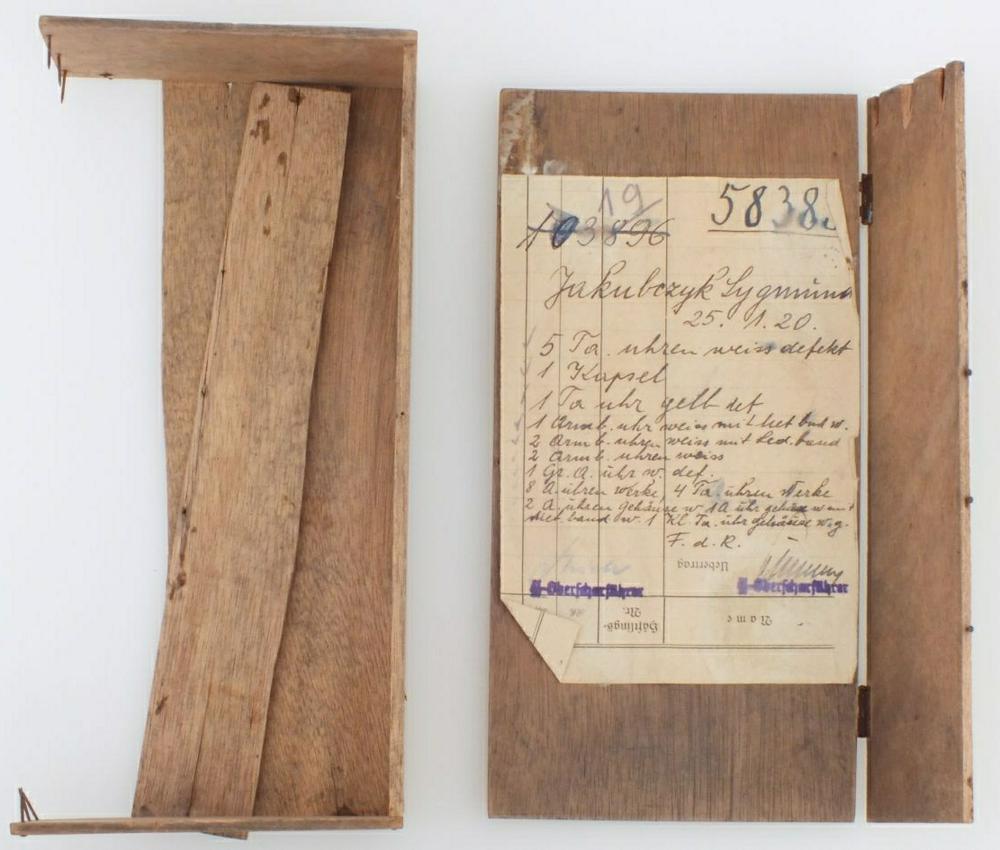 19
103896 5838.
Jakubczyk Sygmund
25. 1. 20.
5 Ta. uhren weiss defekt
1 Kapsel
1 Ta uhr gelb def
1 Armb. uhr weiss mit bd w.
2 Armb. uhren weiss mit Led. band
2 Armb. uhren weiss
1 Gr. A. uhr w. def.
8 A. uhren werke, 4 Ta. uhren Werke
2 A. uhren gehäuse w. 1 A uhr gehäuse w mit
band w. 1 Kl. Ta. uhr gehäuse w. g.
F. d. R.
Uebertrag
ᛋᛋ-Oberscharführer ᛋᛋ-Oberscharführer
Häftlings-Nr.
Name